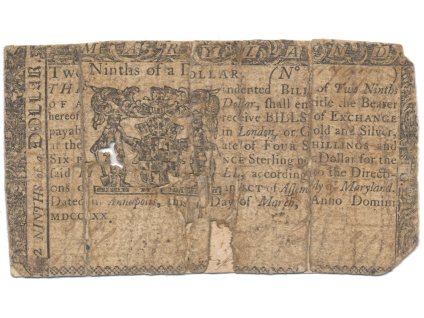 MARYLAND
2 NINTHS of a DOLLAR
TWO Ninths of a DOLLAR, N°
THIS indented BILL of Two Ninths
OF A Dollar, shall entitle the Bearer
hereof receive BILLS of EXCHANGE
payable in London, or Gold and Silver,
at Rate of FOUR SHILLINGS and
SIX PENCE Sterling Dollar for the
said BILL, according to the Directi-
ons of an ACT of Assembly of Maryland.
Dated in Annapolis, this Day of March, Anno Domini
MDCCLXX.